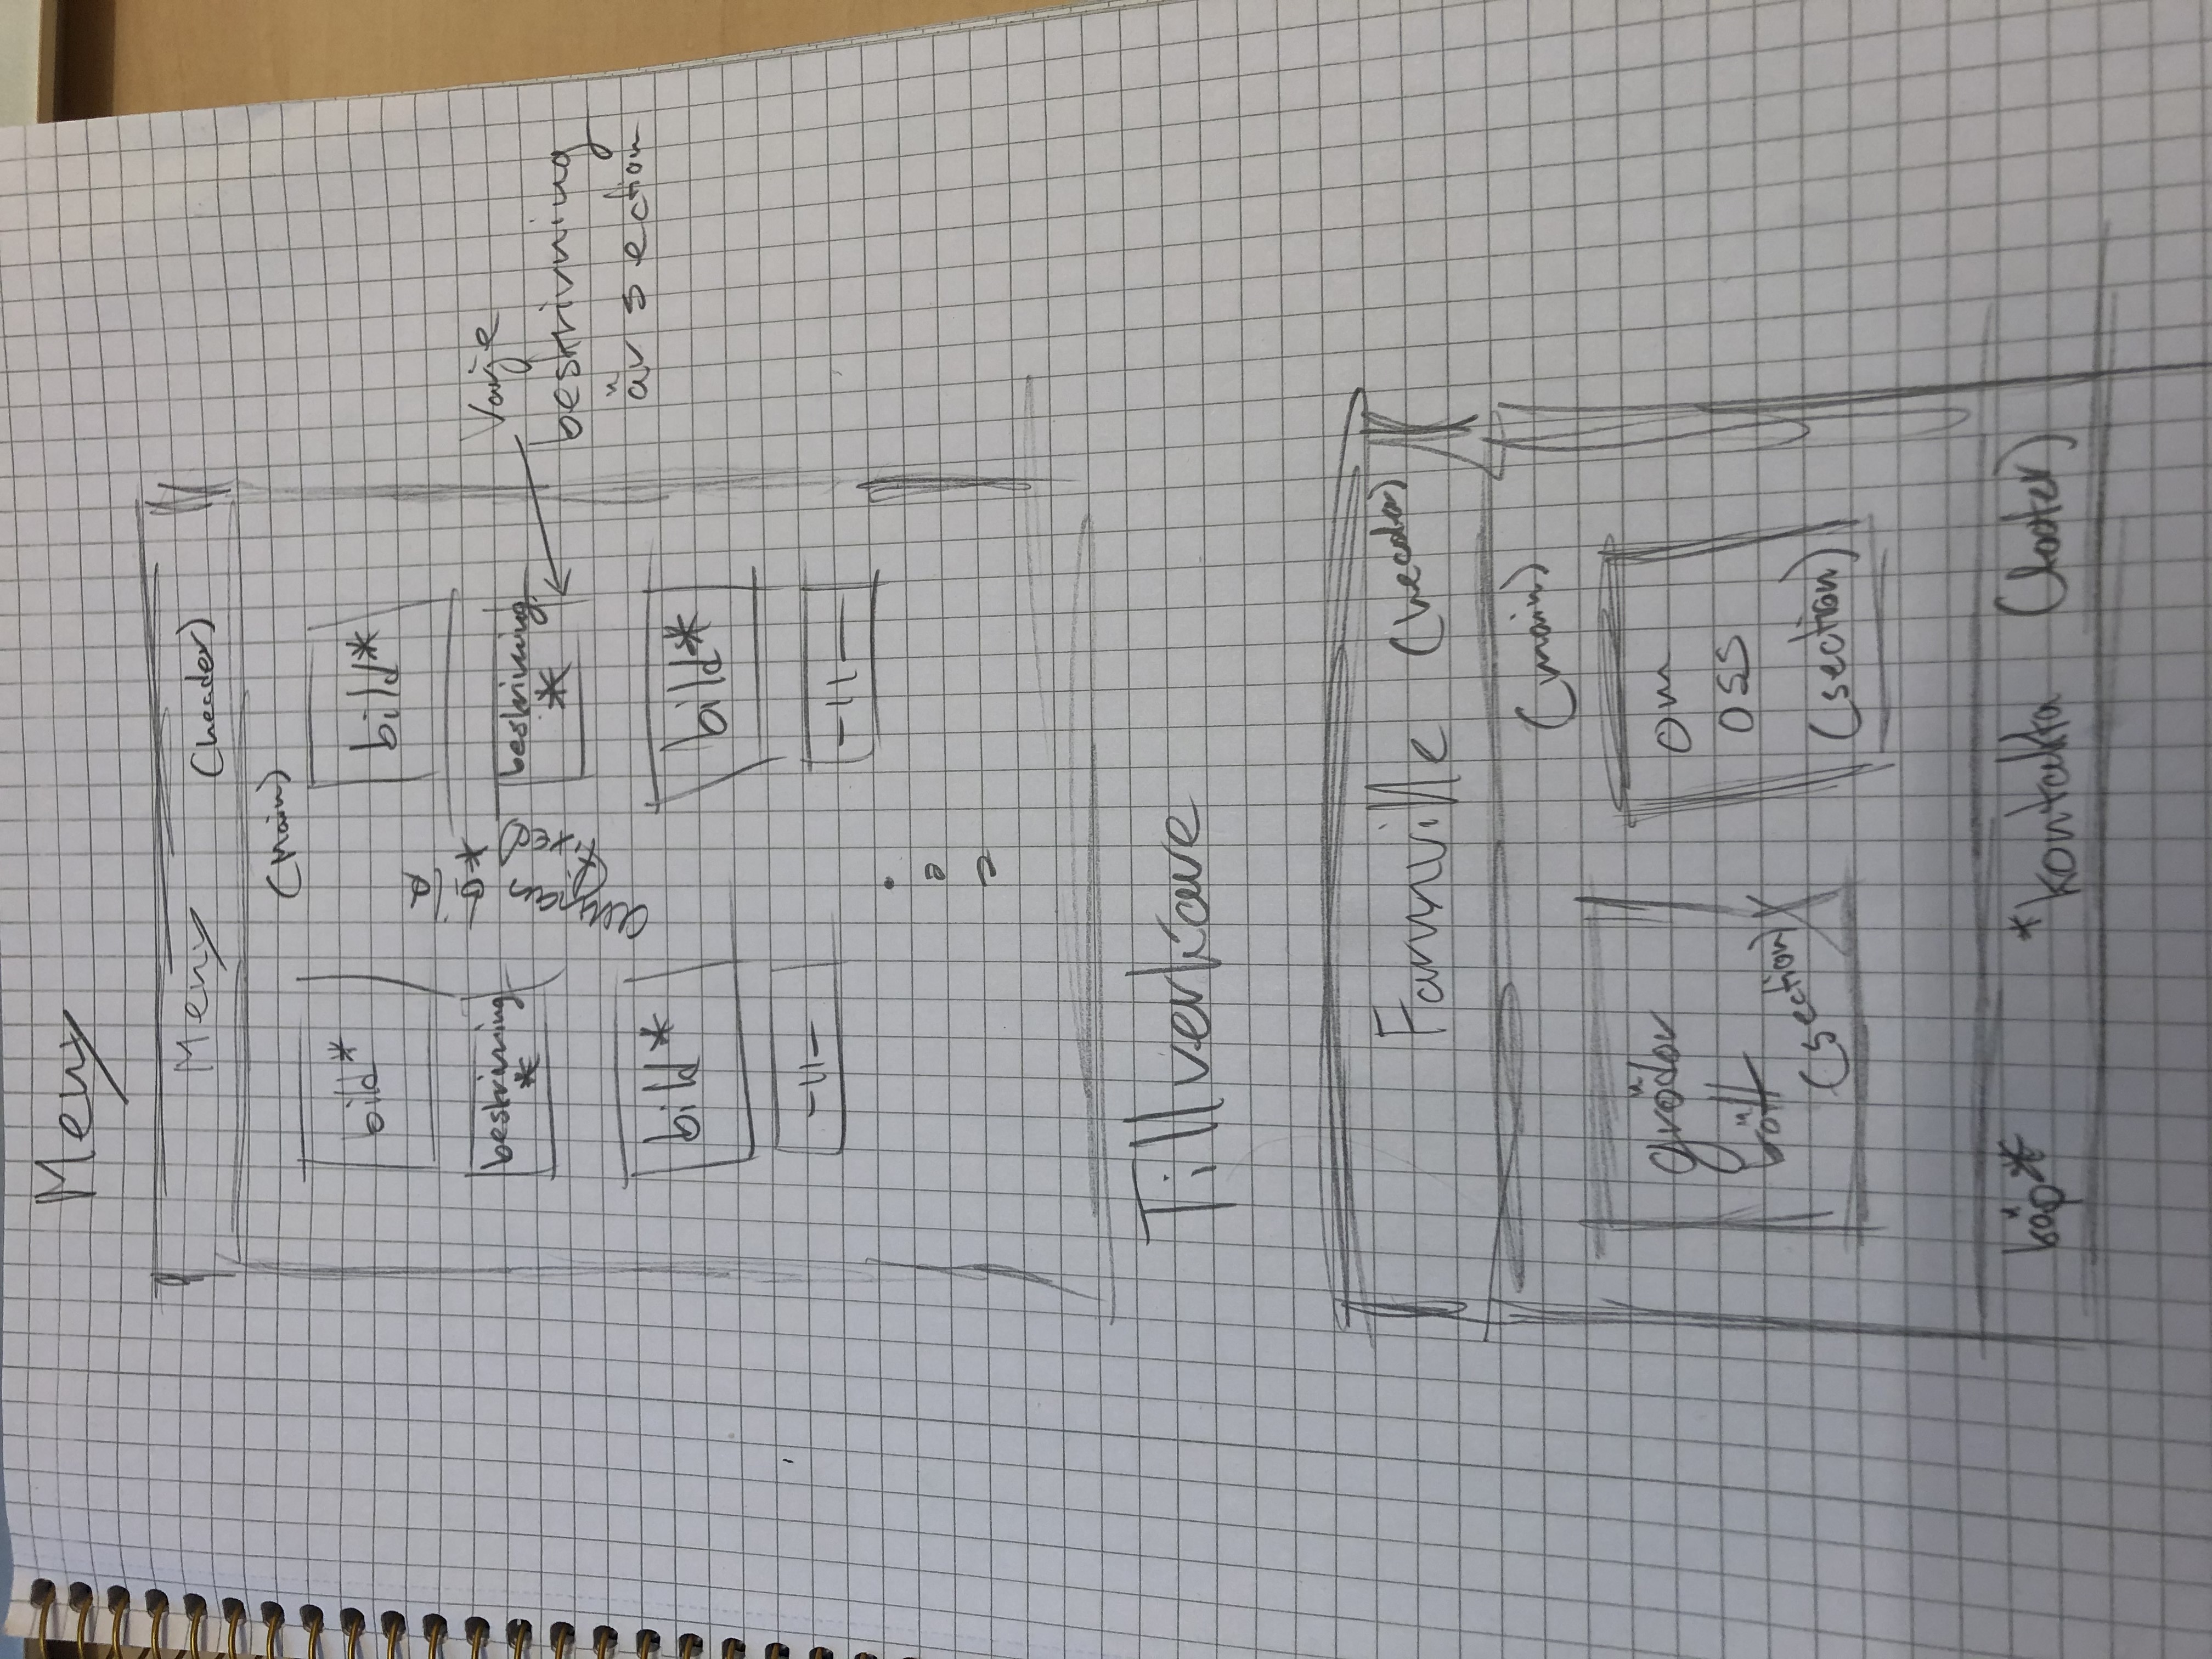 Meny
Meny (header)
(Main)
bild*
bild*
annan bild
(fixed) *
beskrivning
*
beskrivning
*
Varje
beskrivning
är section
bild*
bild*
-11-
-11-
Tillverkare
Farmville (header)
(main)
grödor
kött
(section)
om
oss
(section)
köp*
*kontakta (footer)